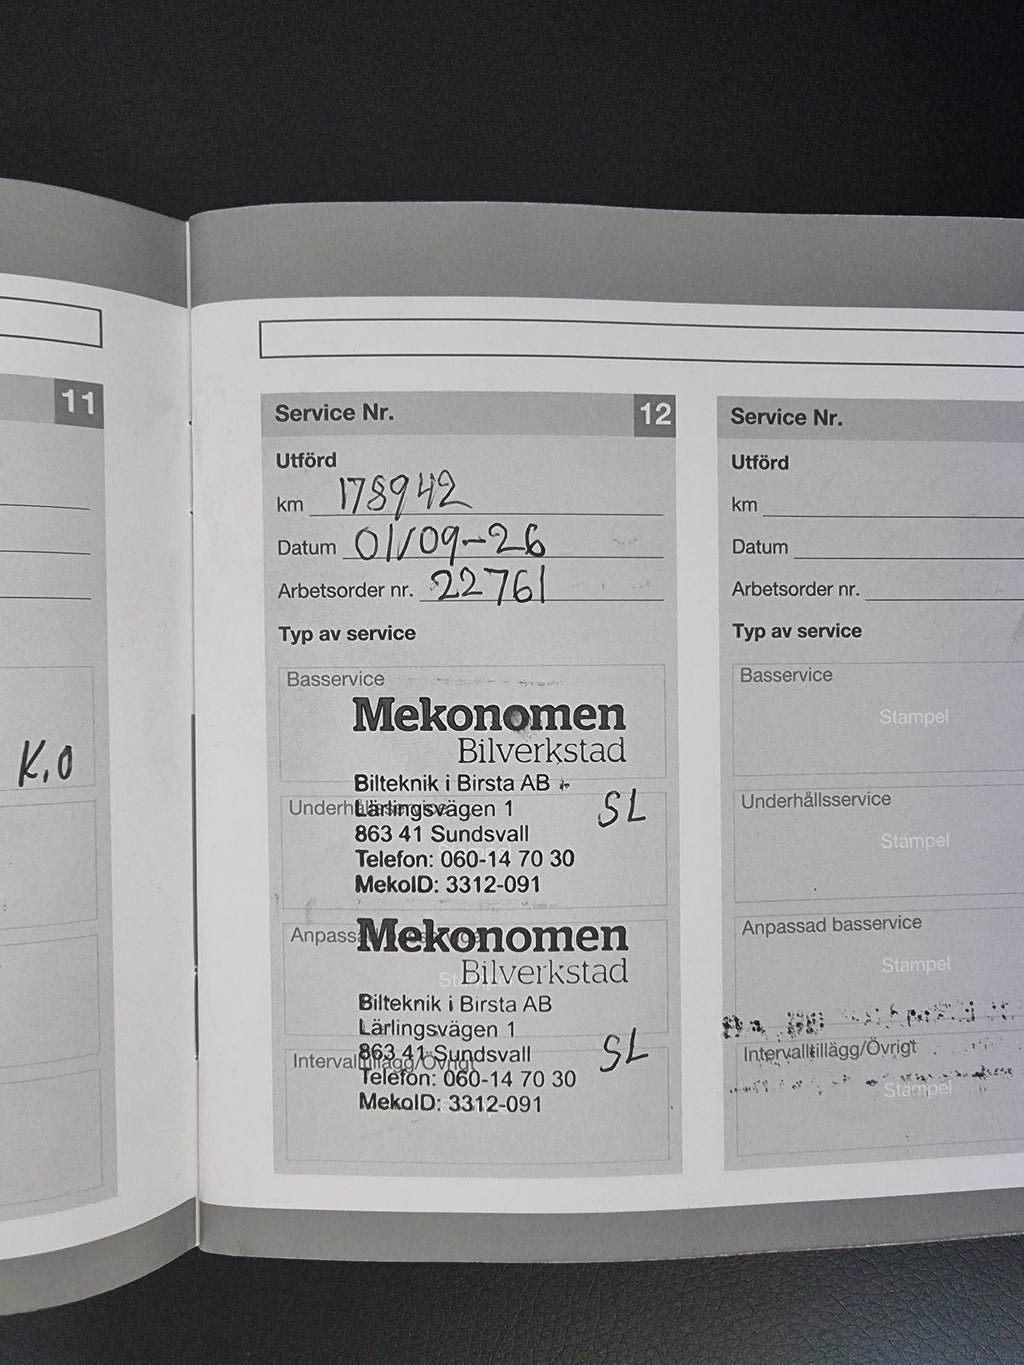 11
K.O
Service Nr. 12
Utförd
km 178942
Datum 01/09-26
Arbetsorder nr. 22761
Typ av service
Basservice
Mekonomen
Bilverkstad
Bilteknik i Birsta AB
Underhållsservice
Lärlingsvägen 1
SL
863 41 Sundsvall
Telefon: 060-14 70 30
MekoID: 3312-091
Anpassad basservice
Mekonomen
Bilverkstad
Stämpel
Bilteknik i Birsta AB
Lärlingsvägen 1
863 41 Sundsvall
SL
Intervalltillägg/Övrigt
Telefon: 060-14 70 30
MekoID: 3312-091
Service Nr.
Utförd
km
Datum
Arbetsorder nr.
Typ av service
Basservice
Stämpel
Underhållsservice
Stämpel
Anpassad basservice
Stämpel
Intervalltillägg/Övrigt
Stämpel